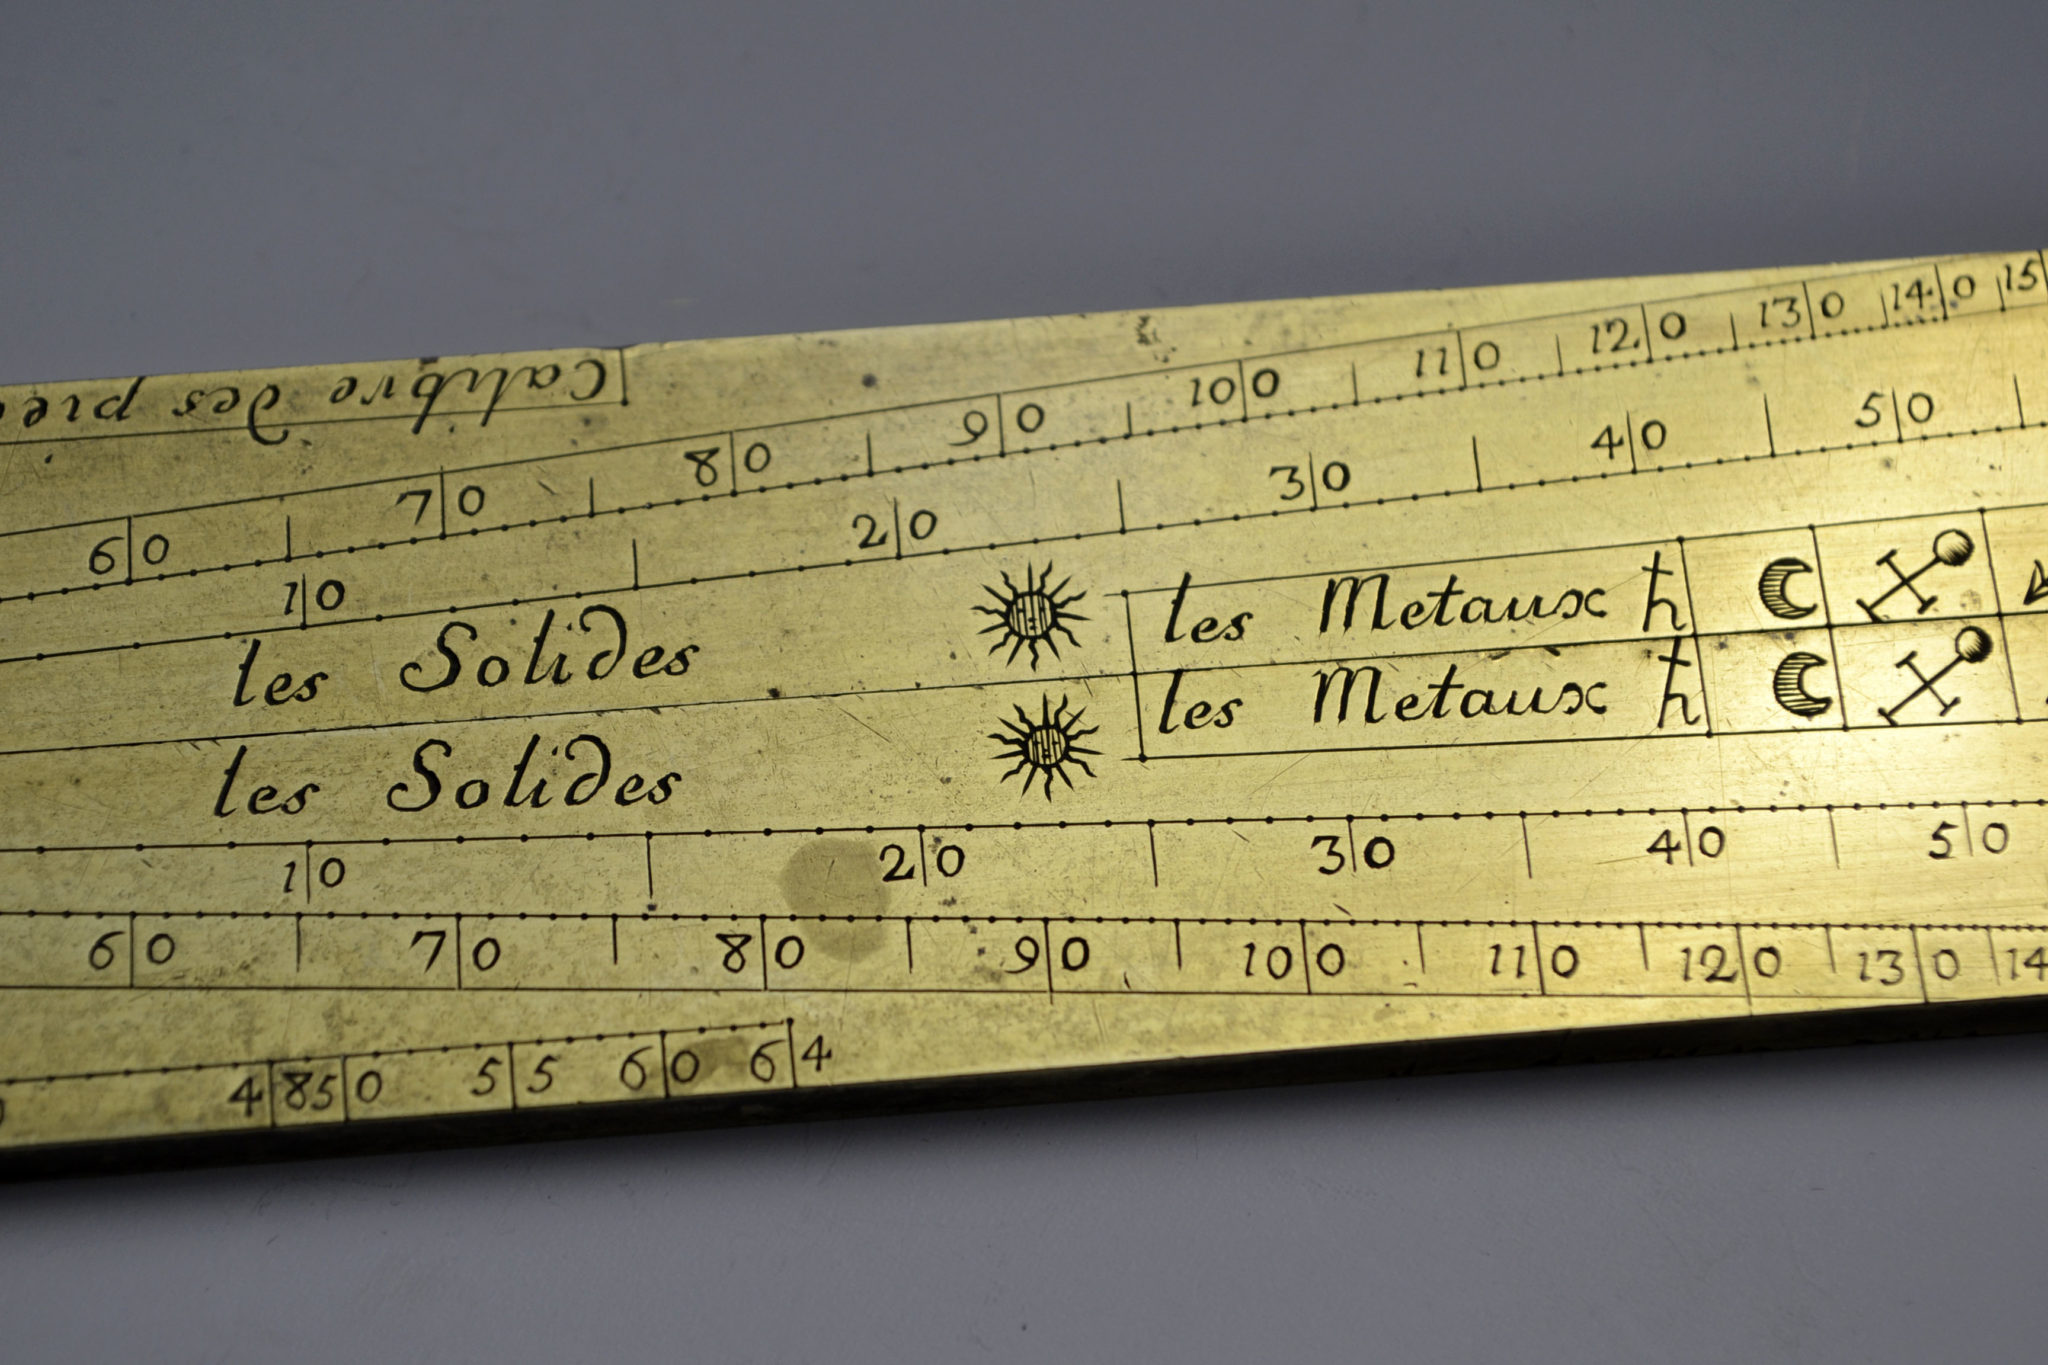 Calibre des pie
60 70 80 90 100 110 120 130 140 15
10 20 30 40 50
les Solides les Metaux ♄ ☾
les Solides les Metaux ♄ ☾
10 20 30 40 50
60 70 80 90 100 110 120 130 14
48 50 55 60 64